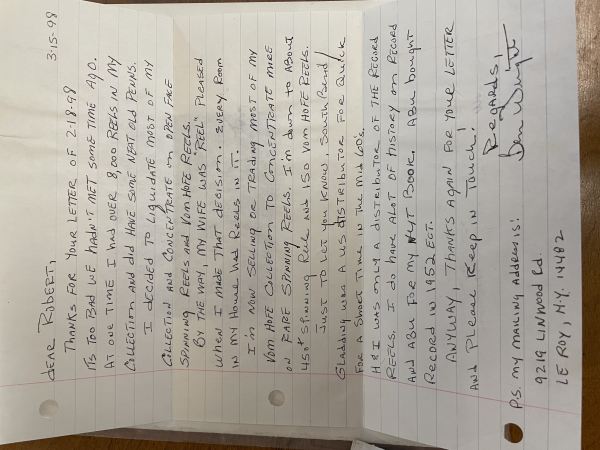 3-15-98
DEAR ROBERT,
THANKS FOR YOUR LETTER OF 2-18-98
ITS TOO BAD WE HADN'T MET SOME TIME AGO.
AT ONE TIME I HAD OVER 8,000 REELS IN MY
COLLECTION AND DID HAVE SOME NEAT OLD PENNS.
I DECIDED TO LIQUIDATE MOST OF MY
COLLECTION AND CONCENTRATE ON OPEN FACE
SPINNING REELS AND VOM HOFE REELS.
BY THE WAY, MY WIFE WAS "REEL" PLEASED
WHEN I MADE THAT DECISION. EVERY ROOM
IN MY HOUSE HAD REELS IN IT.
I'M NOW SELLING OR TRADING MOST OF MY
VOM HOFE COLLECTION TO CONCENTRATE MORE
ON RARE SPINNING REELS. I'M DOWN TO ABOUT
450+ SPINNING REELS AND 150 VOM HOFE REELS.
JUST TO LET YOU KNOW, SOUTH BEND/
GLADDING WAS A US DISTRIBUTOR FOR QUICK
FOR A SHORT TIME IN THE MID 60'S.
H&I WAS ONLY A DISTRIBUTOR OF THE RECORD
REELS. I DO HAVE ALOT OF HISTORY ON RECORD
AND ABU FOR MY NEXT BOOK. ABU BOUGHT
RECORD IN 1952 ECT.
ANYWAY, THANKS AGAIN FOR YOUR LETTER
AND PLEASE KEEP IN TOUCH!
REGARDS,
Ben Wright
P.S. MY MAILING ADDRESS IS:
9219 LINWOOD Rd.
LE ROY, N.Y. 14482